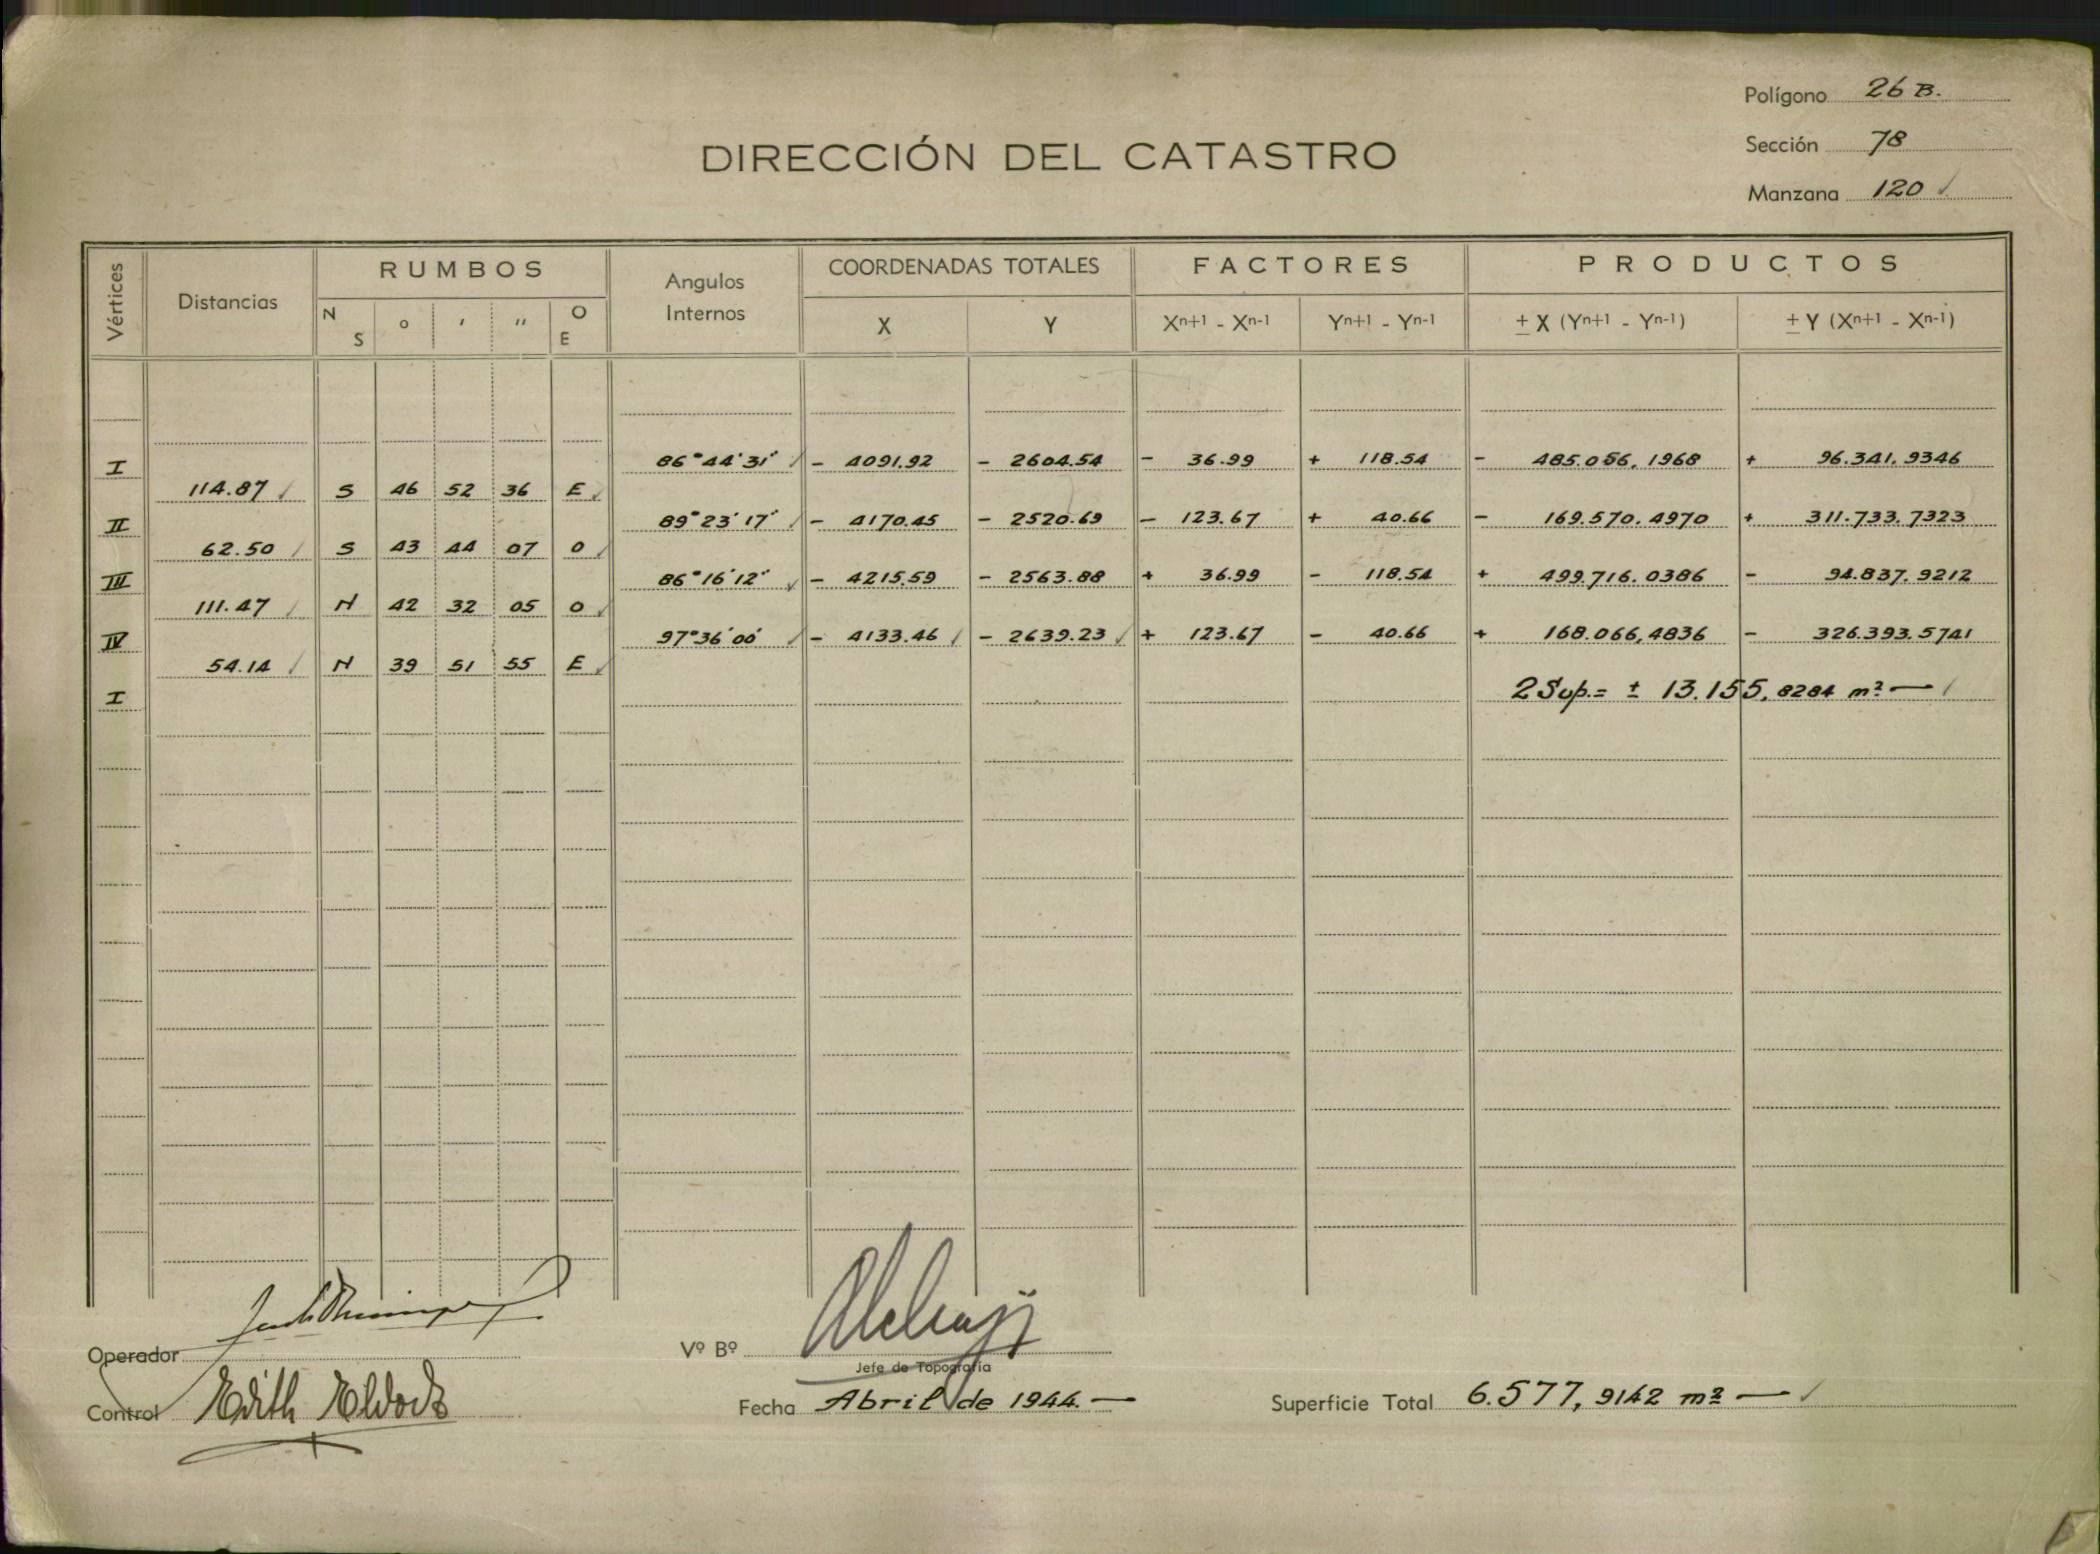 Polígono 26 B.
Sección 78
Manzana 120 ✓
DIRECCIÓN DEL CATASTRO
Vértices Distancias RUMBOS Angulos Internos COORDENADAS TOTALES FACTORES PRODUCTOS
N S o ' '' O E X Y Xn+1 - Xn-1 Yn+1 - Yn-1 ± X (Yn+1 - Yn-1) ± Y (Xn+1 - Xn-1)
I 86°44'31" ✓ - 4091.92 - 2604.54 - 36.99 + 118.54 - 485.056,1968 + 96.341,9346
114.87 ✓ S 46 52 36 E ✓
II 89°23'17" ✓ - 4170.45 - 2520.69 - 123.67 + 40.66 - 169.570,4970 + 311.733,7323
62.50 ✓ S 43 44 07 O ✓
III 86°16'12" ✓ - 4215.59 - 2563.88 + 36.99 - 118.54 + 499.716,0386 - 94.837,9212
111.47 ✓ N 42 32 05 O ✓
IV 97°36'00" ✓ - 4133.46 ✓ - 2639.23 ✓ + 123.67 - 40.66 + 168.066,4836 - 326.393,5741
54.14 ✓ N 39 51 55 E ✓
I 2 Sup.= ± 13.155,8284 m² — ✓
Operador
Vº Bº
Jefe de Topografía
Control Edith
Fecha Abril de 1944. —
Superficie Total 6.577,9142 m² — ✓